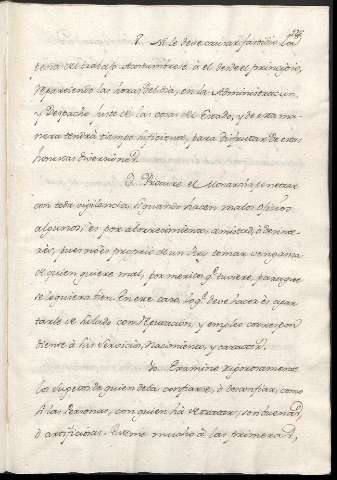 8. Ni le deve causar fastidio la
pena del trabajo. Acostumbrese à el desde el principio,
repartiendo las horas del dia, en la Administracion,
y Despacho justo de las cosas del Estado, y de esta ma-
nera tendrà tiempo suficiente, para disfrutar de estas
honestas diversiones.
9. Procure el Monarcha penetrar
con toda vigilancia, si quando hacen malos oficios
algunos es por aborrecimiento, amistad, ò de inte-
rès, pues no es proprio de un Rey tomar venganza
de quien quiere mal, por meritos q.e tuviere, para que
se le quiera bien. En ese caso, lo q.e deve hacer es apar-
tarle de su lado con Reputacion, y empleo correspon
diente à su Servicio, Nacimiento, y caracter.
10. Examine rigorosamente
los Sugetos de quien deba confiarse, ò desconfiar, como
à las Personas, con quien há de tratar, son buenas,
ò artificiosas. Estime mucho à las primeras,